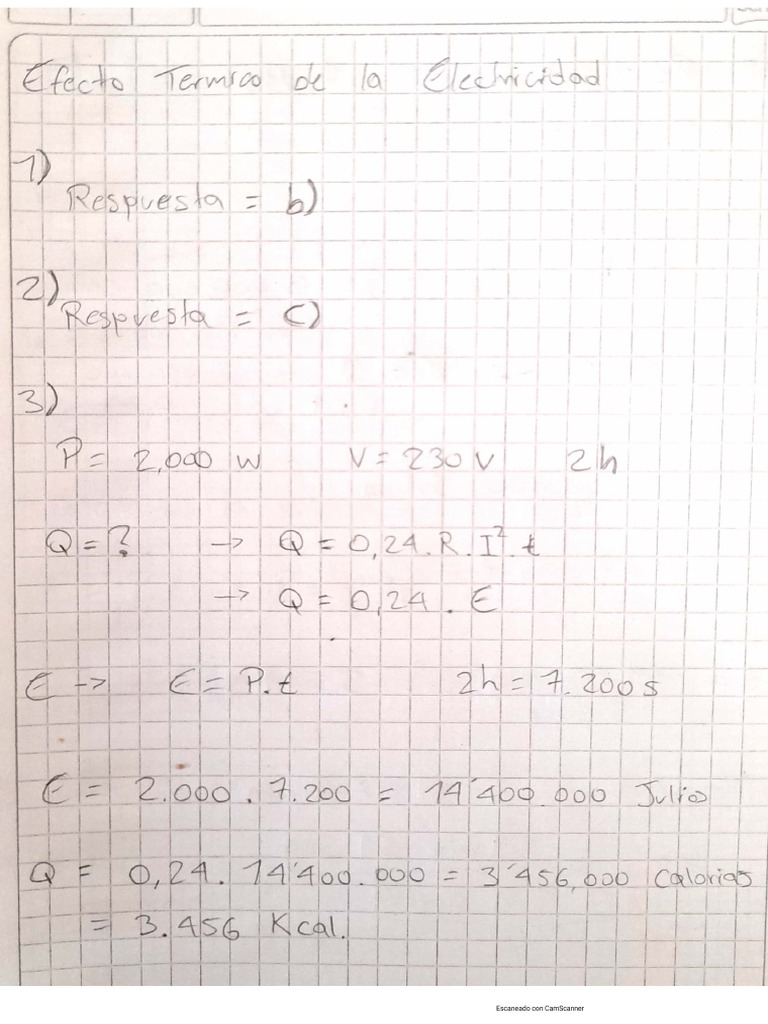 Efecto Termico de la Electricidad
1)
Respuesta = b)
2)
Respuesta = c)
3)
P = 2,000 W V = 230 V 2h
Q = ? → Q = 0,24 . R . I² . t
→ Q = 0,24 . E
E → E = P.t 2h = 7.200 s
E = 2.000 . 7.200 = 14'400.000 Julio
Q = 0,24 . 14'400.000 = 3'456,000 Calorias
= 3.456 Kcal.
Escaneado con CamScanner